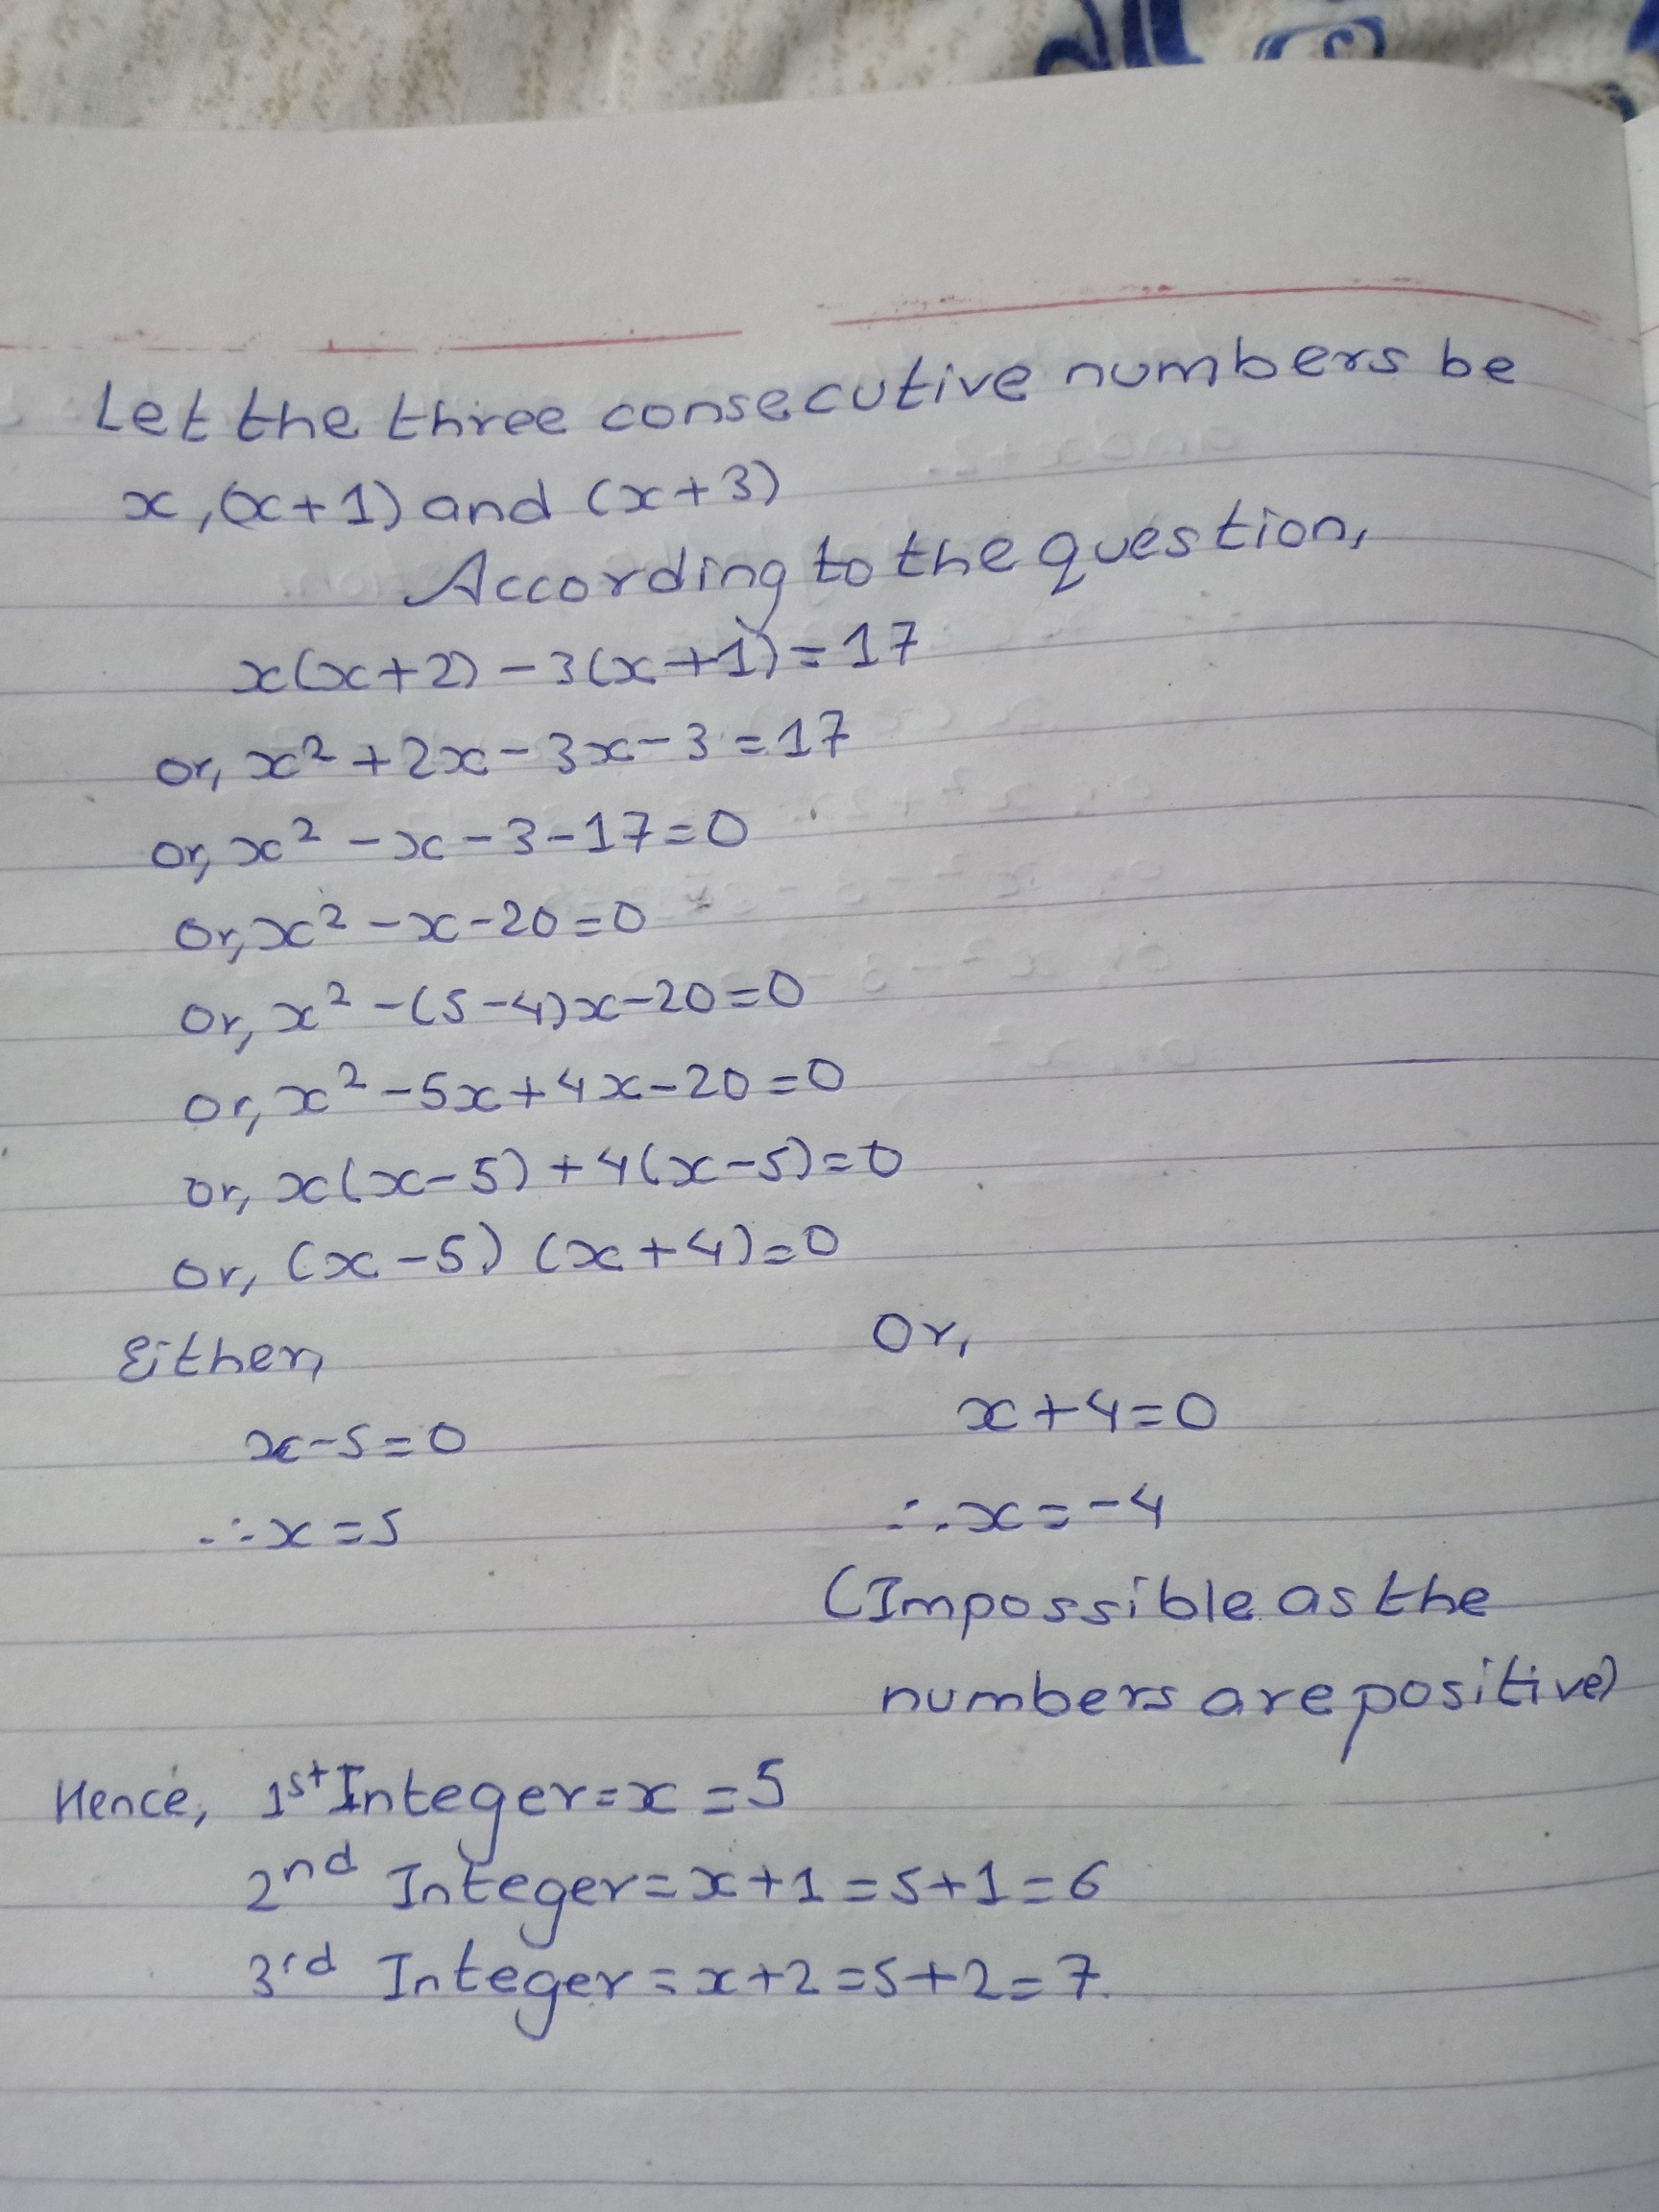 Let the three consecutive numbers be
x, (x+1) and (x+3)
According to the question,
x(x+2) - 3(x+1) = 17
or, x² + 2x - 3x - 3 = 17
or, x² - x - 3 - 17 = 0
or, x² - x - 20 = 0
or, x² - (5-4)x - 20 = 0
or, x² - 5x + 4x - 20 = 0
or, x(x-5) + 4(x-5) = 0
or, (x-5) (x+4) = 0
Either,
x-5 = 0
∴ x = 5
Or,
x+4 = 0
∴ x = -4
(Impossible as the
numbers are positive)
Hence, 1st Integer = x = 5
2nd Integer = x+1 = 5+1 = 6
3rd Integer = x+2 = 5+2 = 7.